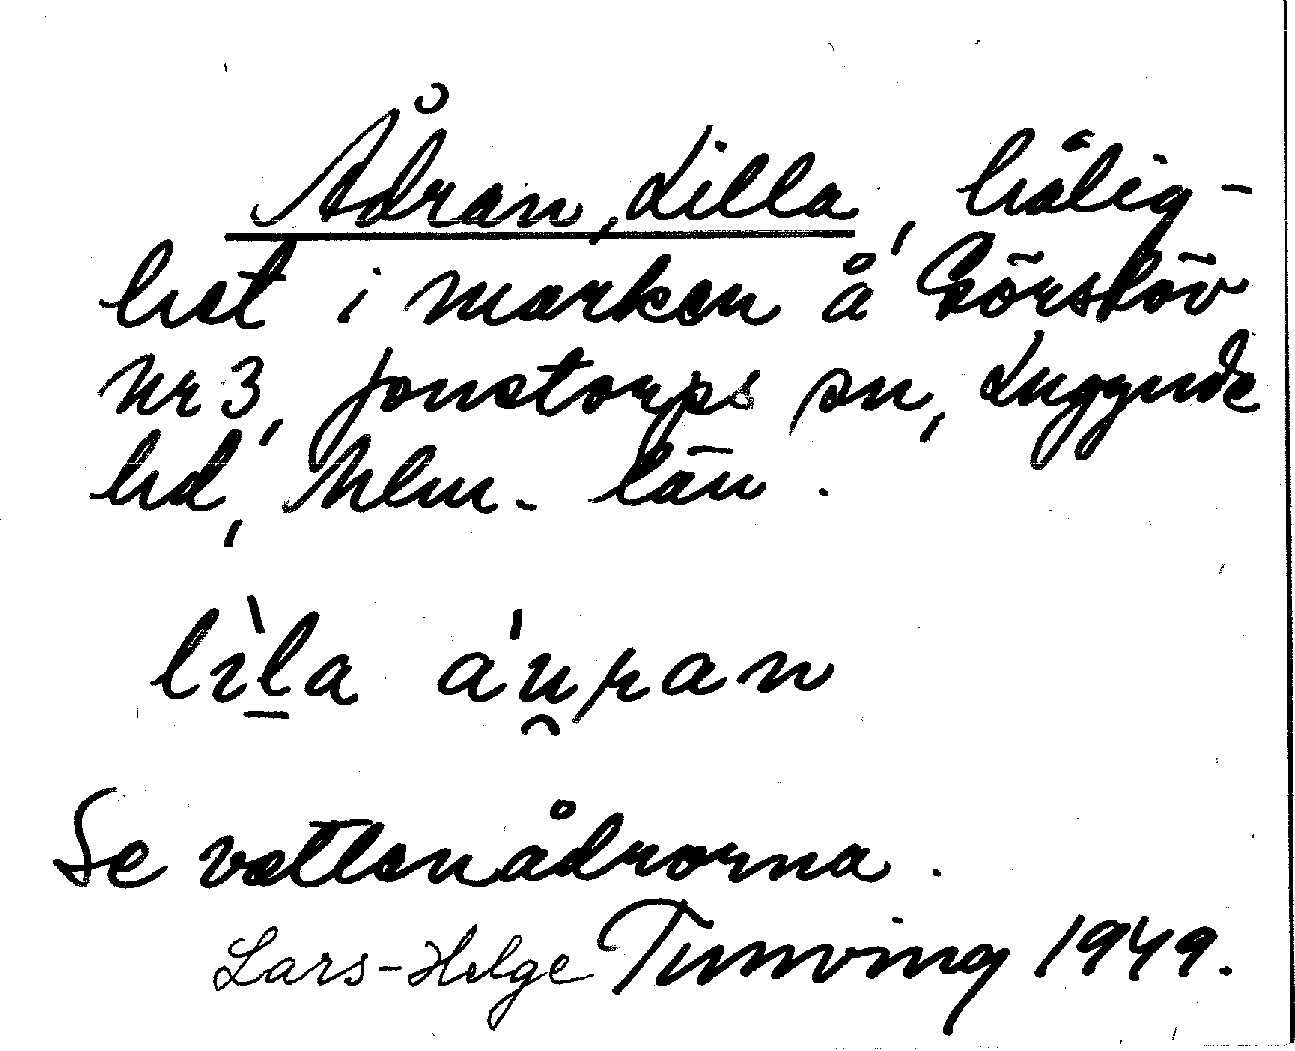 Ådran, Lilla, hålig-
het i marken å Görslöv
Nr 3, Jonstorps sn, Luggude
hd, Mlm. län.
lìl̠a áu̯ran
Se vattenådrorna.
Lars-Helge Tunving 1949.